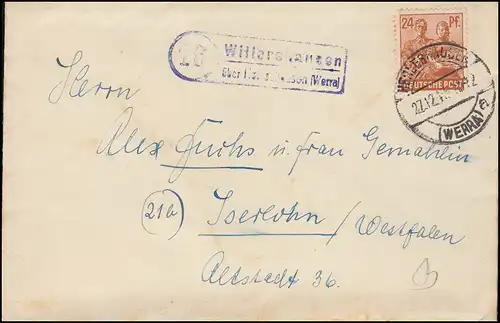 16 Willershausen
über (Werra)
24 PF.
DEUTSCHE POST
27.12.
(WERRA)
Herrn
Alex Fuchs u. Frau Gemahlin
21b
Iserlohn / Westfalen
Altstadt 36.